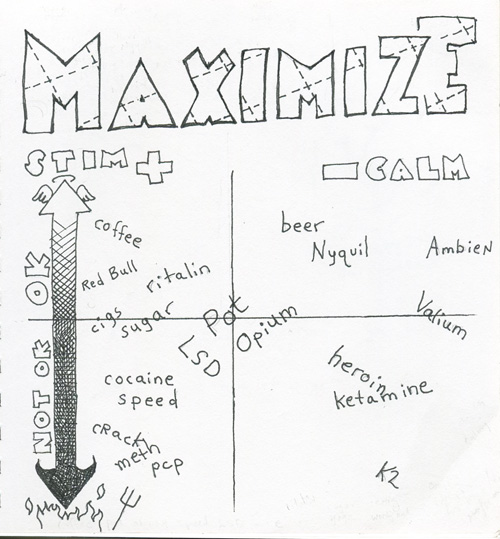 MAXIMIZE
STIM +
- CALM
OK
NOT OK
coffee
Red Bull
ritalin
cigs
sugar
beer
Nyquil
Ambien
Pot
Opium
Valium
LSD
cocaine
speed
crack
meth
pcp
heroin
ketamine
K2